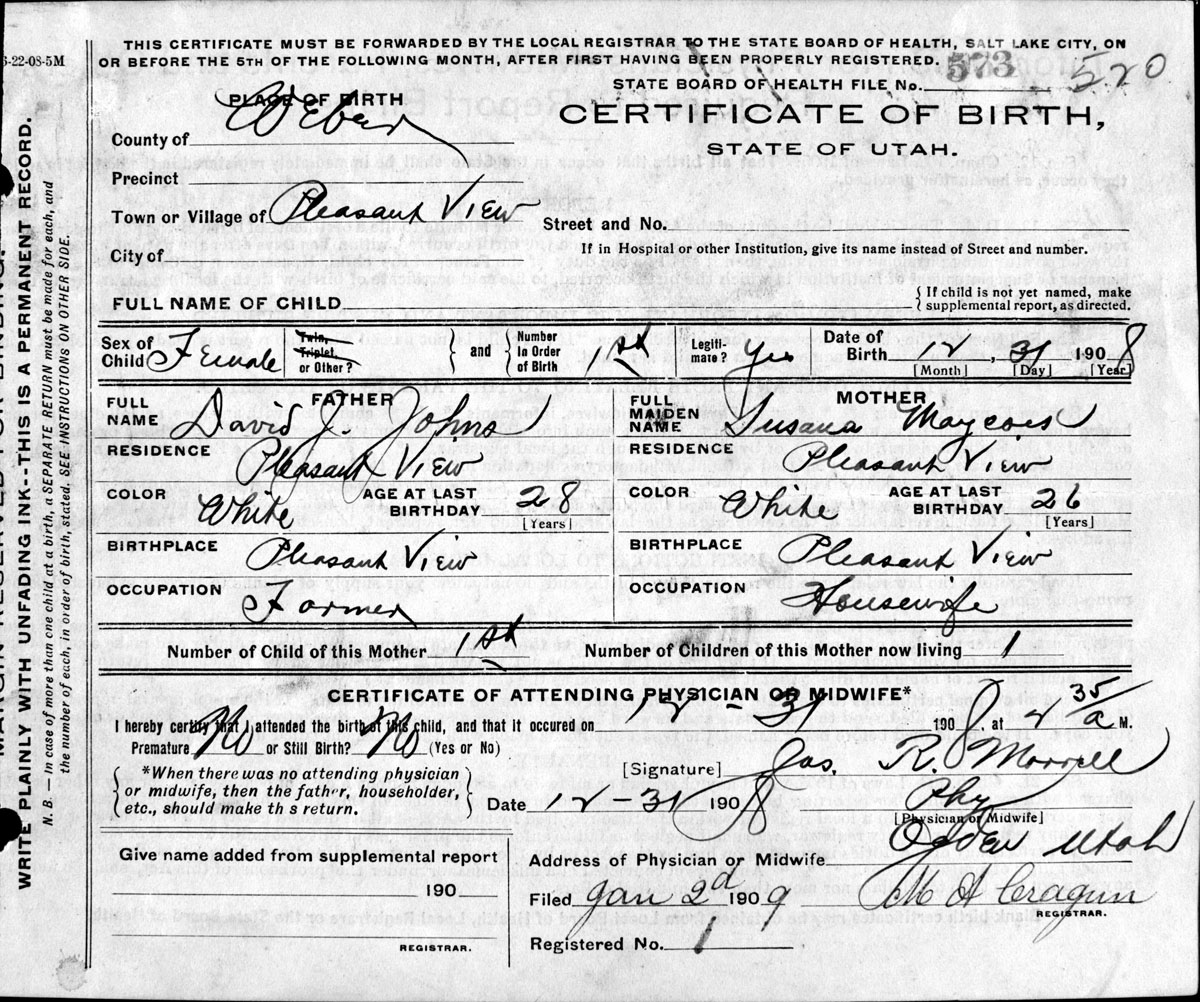 3-22-08-5M
THIS CERTIFICATE MUST BE FORWARDED BY THE LOCAL REGISTRAR TO THE STATE BOARD OF HEALTH, SALT LAKE CITY, ON
OR BEFORE THE 5TH OF THE FOLLOWING MONTH, AFTER FIRST HAVING BEEN PROPERLY REGISTERED.
STATE BOARD OF HEALTH FILE No. 573 520
PLACE OF BIRTH
CERTIFICATE OF BIRTH,
STATE OF UTAH.
County of Weber
Precinct
Town or Village of Pleasant View
Street and No.
If in Hospital or other Institution, give its name instead of Street and number.
City of
FULL NAME OF CHILD
{ If child is not yet named, make
supplemental report, as directed.
Sex of Child Female
Twin, Triplet, or Other?
} and {
Number In Order of Birth 1st
Legiti-mate? Yes
Date of Birth 12, 31 1908
[Month] [Day] [Year]
FATHER
FULL NAME David J. Johns
RESIDENCE Pleasant View
COLOR White AGE AT LAST BIRTHDAY 28 [Years]
BIRTHPLACE Pleasant View
OCCUPATION Farmer
MOTHER
FULL MAIDEN NAME Susana
RESIDENCE Pleasant View
COLOR White AGE AT LAST BIRTHDAY 26 [Years]
BIRTHPLACE Pleasant View
OCCUPATION Housewife
Number of Child of this Mother 1st Number of Children of this Mother now living 1
CERTIFICATE OF ATTENDING PHYSICIAN OR MIDWIFE*
I hereby certify that I attended the birth of this child, and that it occured on 12-31 1908, at 2 35/a M.
Premature No or Still Birth? No (Yes or No)
[Signature] Jas. R. Morrell
{ *When there was no attending physician
or midwife, then the father, householder,
etc., should make th s return. }
Date 12-31 1908 Phy
[Physician or Midwife]
Give name added from supplemental report
190
REGISTRAR.
Address of Physician or Midwife. Ogden Utah
Filed Jan 2d 1909 M A Cragun
REGISTRAR.
Registered No. 1
WRITE PLAINLY WITH UNFADING INK--THIS IS A PERMANENT RECORD.
N. B. — In case of more than one child at a birth, a SEPARATE RETURN must be made for each, and
the number of each, in order of birth, stated. SEE INSTRUCTIONS ON OTHER SIDE.